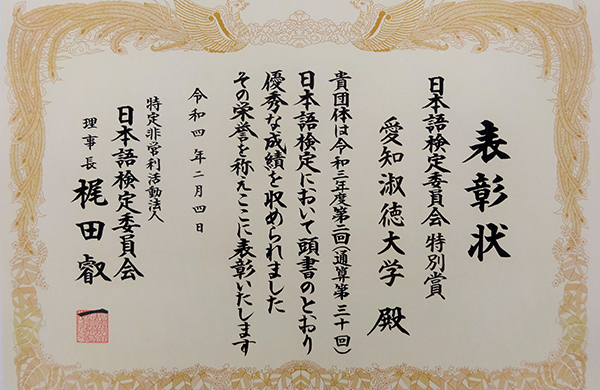 表彰状
日本語検定委員会 特別賞
愛知淑徳大学 殿
貴団体は令和三年度第二回(通算第三十回)
日本語検定において頭書のとおり
優秀な成績を収められました
その栄誉を称えここに表彰いたします
令和四年二月四日
特定非営利活動法人
日本語検定委員会
理事長 梶田叡一